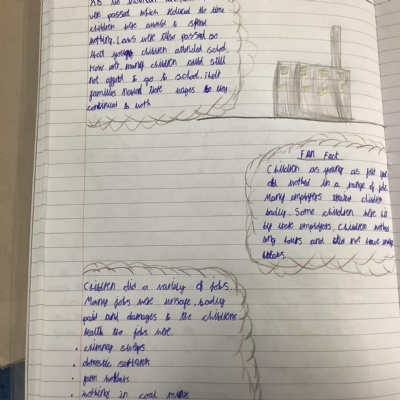 were passed which reduced the time
children were allowed to spend
working. Laws were also passed so
that young children attended school.
How ever many children could still
not afford to go to school. their
families needed their wages so they
continued to work
Fun Fact
Children as young as
did worked in a range of jobs.
Many employers treated children
badly. Some children were hit
by employers. Children worked
long hours and did not have
breaks.
Children did a variety of jobs.
Many jobs were unsafe, badly
paid and damages to the childrens
health the jobs were.
• chimney sweeps
• domestic servants
• farm workers
• working in coal mines